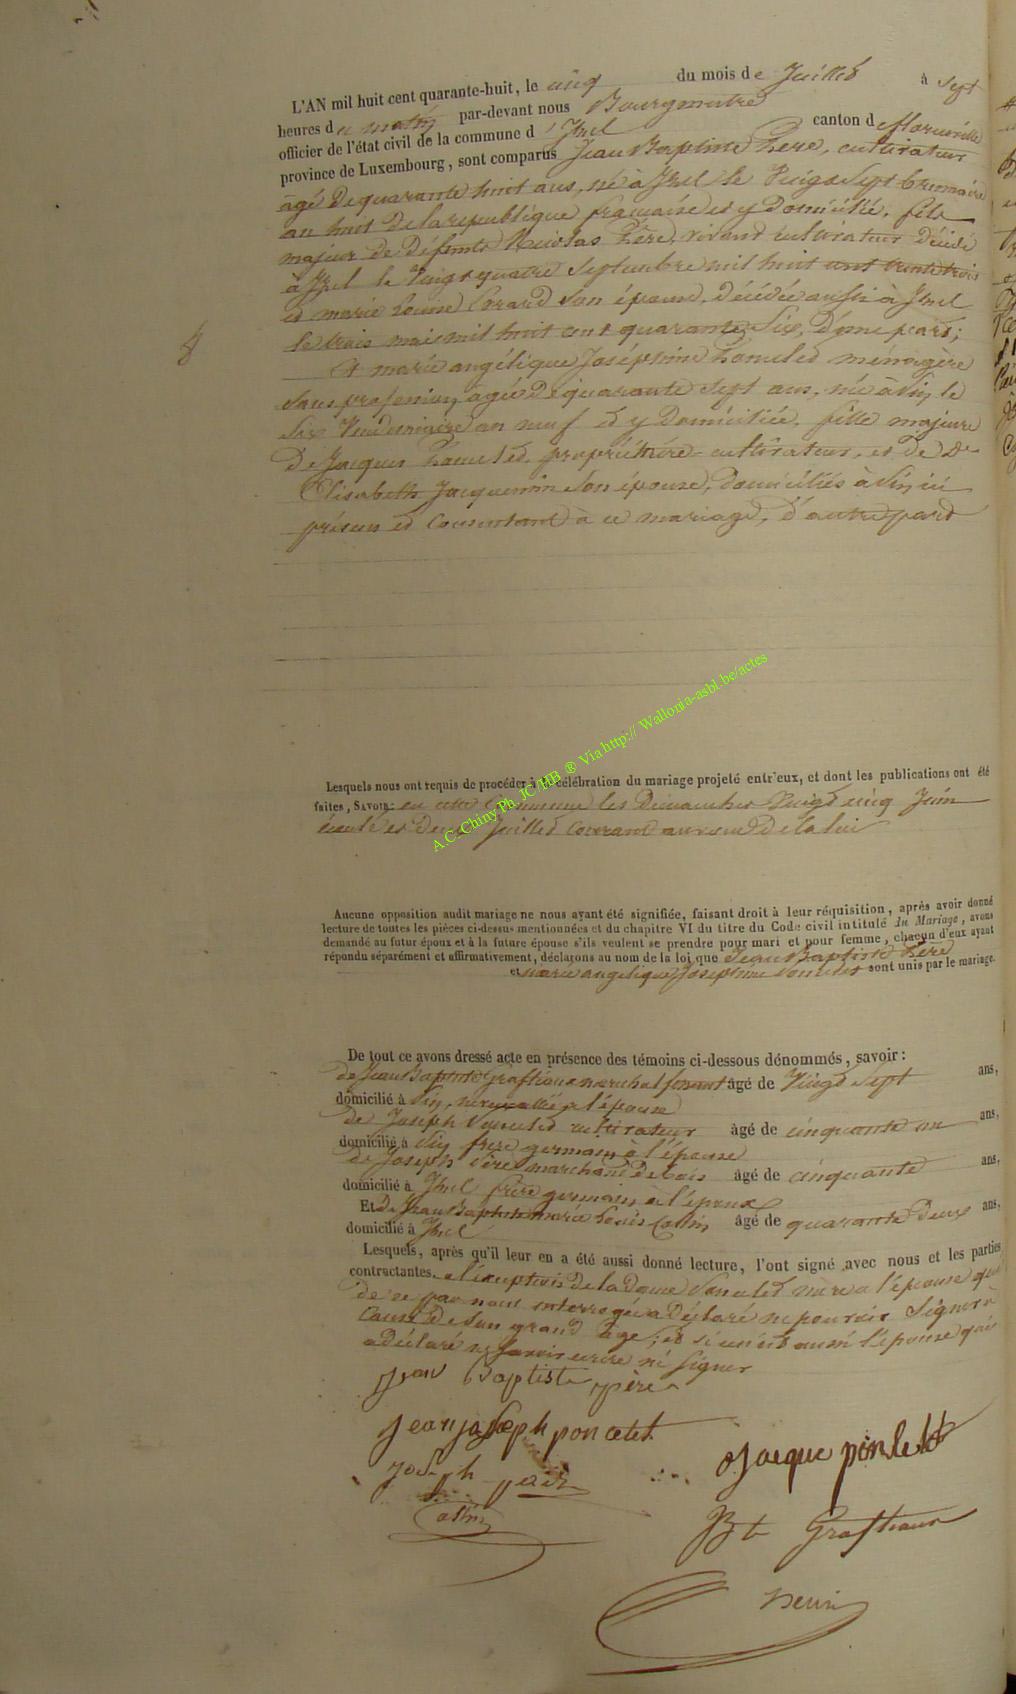 L'AN mil huit cent quarante-huit, le cinq du mois de Juillet à sept
heures du matin par-devant nous Bourgmestre
officier de l'état civil de la commune d'Izel canton de florenville
province de Luxembourg, sont comparus Jean Baptiste Père, cultivateur
âgé de quarante huit ans, né à Izel le Vingt Sept brumaire
an huit de la republique française et y domicilié, fils
majeur de défunts Nicolas Père, vivant cultivateur décédé
à Izel le Vingt quatre Septembre mil huit cent trente trois
et marie Louise Gerard son épouse, décédée aussi à Izel
le trois mai mil huit cent quarante Six, d'une part;
Et marie angélique Joséphine Poncelet ménagère
sans profession, âgée de quarante sept ans, née à Pin, le
Six Vendemiaire an neuf et y Domiciliée, fille majeure
de Jacques Poncelet, propriétaire-cultivateur, et de
Elisabeth Jacquemin son épouse, domiciliés à Pin, ici
présens et consentant à ce mariage, d'autre part
Lesquels nous ont requis de procéder à la célébration du mariage projeté entr'eux, et dont les publications ont été
faites, Savoir: en cette Commune les Dimanches Vingt cinq Juin
écoulé et Deux Juillet Courant au vœu de la loi
Aucune opposition audit mariage ne nous ayant été signifiée, faisant droit à leur réquisition, après avoir donné
lecture de toutes les pièces ci-dessus mentionnées et du chapitre VI du titre du Code civil intitulé du Mariage, avons
demandé au futur époux et à la future épouse s'ils veulent se prendre pour mari et pour femme, chacun d'eux ayant
répondu séparément et affirmativement, déclarons au nom de la loi que Jean Baptiste Père
et marie angelique Josephine Poncelet sont unis par le mariage.
De tout ce avons dressé acte en présence des témoins ci-dessous dénommés, savoir:
de Jean Baptiste Graftiaux marechal ferrant âgé de Vingt Sept ans,
domicilié à Pin, à l'épouse
de Joseph Poncelet cultivateur âgé de cinquante un ans,
domicilié à Pin frère germain à l'épouse
de Joseph Père marchand de bois âgé de cinquante ans,
domicilié à Izel frère germain à l'époux
Et de Jean Baptiste marie Louis Collin âgé de quarante deux ans,
domicilié à Izel
Lesquels, après qu'il leur en a été aussi donné lecture, l'ont signé avec nous et les parties
contractantes. a l'exception de la Dame Poncelet mère à l'épouse qui
de ce par nous interrogée a déclaré ne pouvoir Signer à
cause de son grand âge; et aussi l'épouse qui
a déclaré ne savoir écrire ni signer
jean baptiste père
jean joseph poncelet
jacque poncelet
joseph père
Collin
JBte Graftiaux
henri
A.C. Chiny Ph. JC/HB ® Via http:// Wallonia-asbl.be/actes